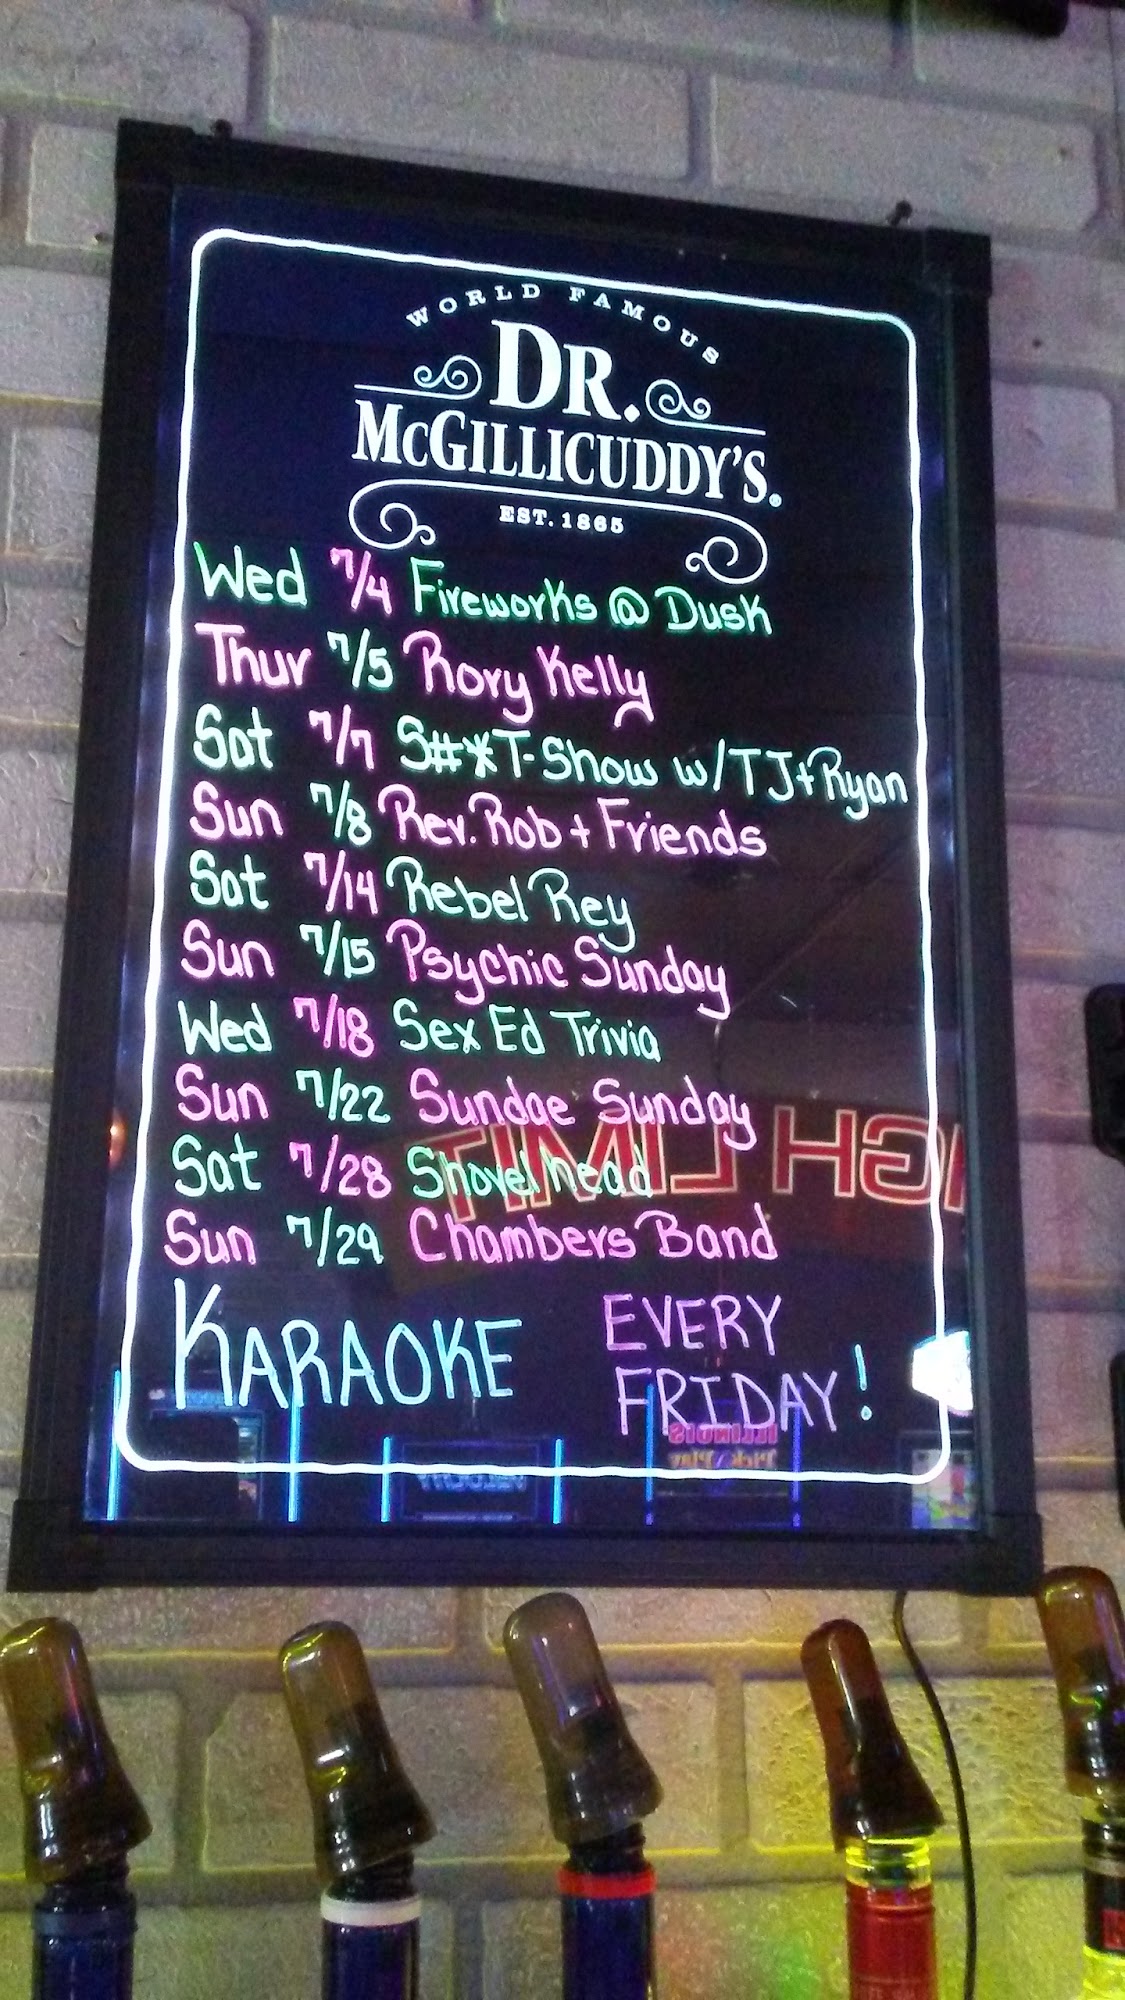 WORLD FAMOUS
DR.
MCGILLICUDDY'S®
EST. 1865
Wed 7/4 Fireworks @ Dusk
Thur 7/5 Rory Kelly
Sat 7/7 S#*T-Show w/TJ+Ryan
Sun 7/8 Rev. Rob + Friends
Sat 7/14 Rebel Rey
Sun 7/15 Psychic Sunday
Wed 7/18 Sex Ed Trivia
Sun 7/22 Sundae Sunday
Sat 7/28 Shovelhead
Sun 7/29 Chambers Band
KARAOKE EVERY
FRIDAY!
LIMIT
ILLINOIS
Pick & Play